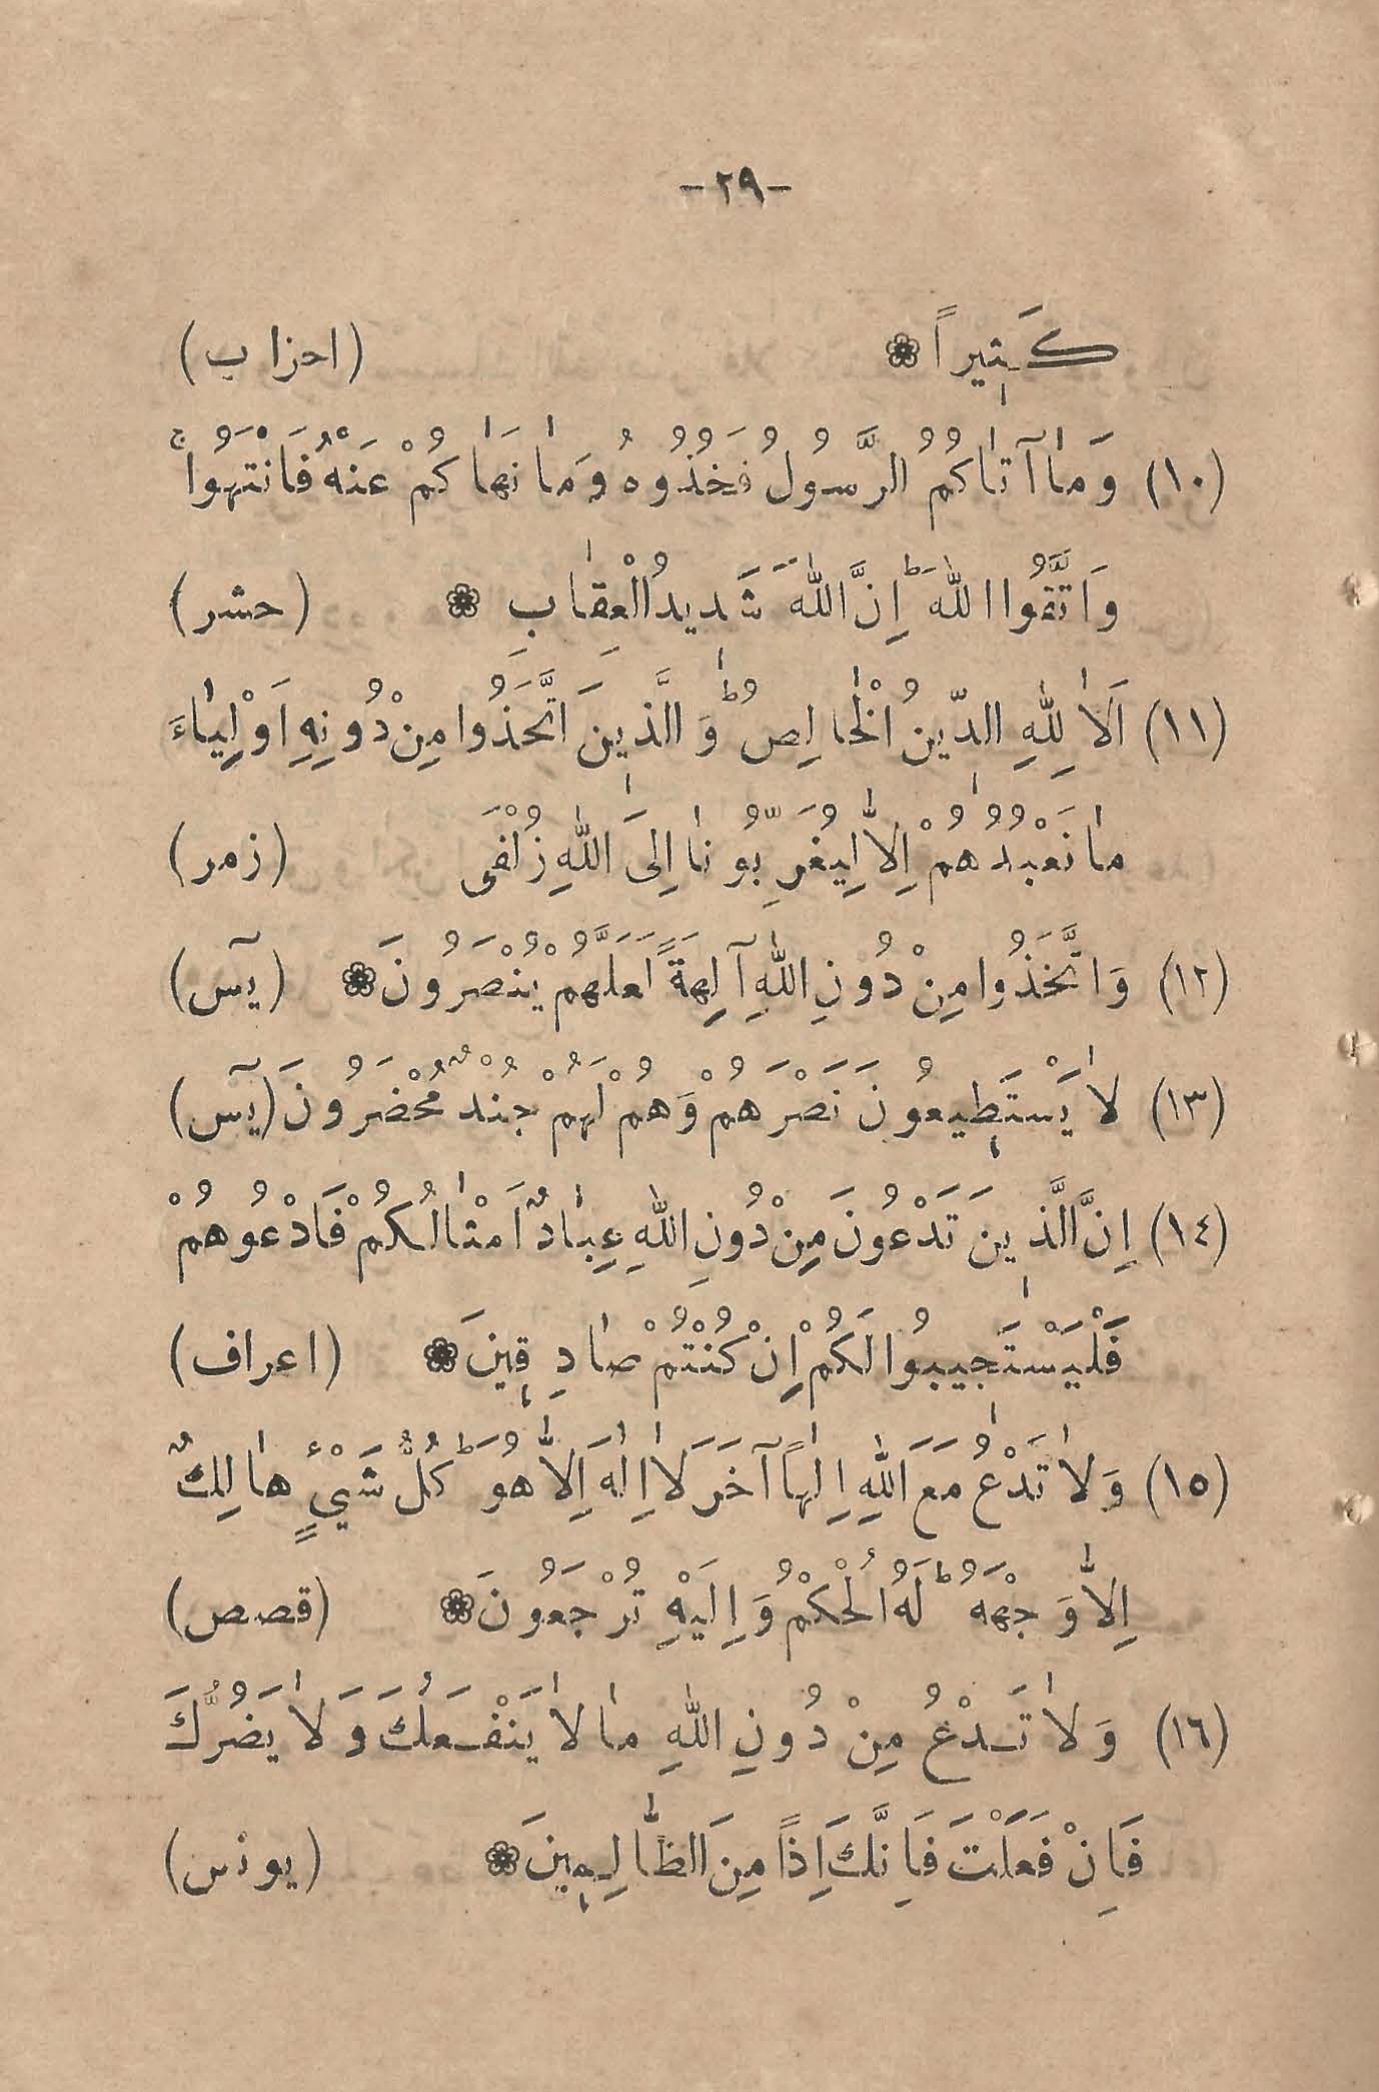 -٢٩-
كَثِيراً ❀ (احزاب)
(١٠) وَمٰا آتٰاكُمُ الرَّسُولُ فَخُذُوهُ وَمٰا نَهٰاكُمْ عَنْهُ فَانْتَهُوا ۚ
وَاتَّقُوا اللّٰهَ ؕ اِنَّ اللّٰهَ شَدِيدُ الْعِقٰابِ ❀ (حشر)
(١١) اَلاٰ لِلّٰهِ الدّينُ الْخٰالِصُ ؕ وَ الَّذِينَ اتَّخَذُوا مِنْ دُونِهِ اَوْلِيٰاءَ
مٰا نَعْبُدُهُمْ اِلاّٰ لِيُقَرِّبُونٰا اِلىَ اللّٰهِ زُلْفَى (زمر)
(١٢) وَاتَّخَذُوا مِنْ دُونِ اللّٰهِ آلِهَةً لَعَلَّهُمْ يُنْصَرُونَ ❀ (يٓس)
(١٣) لاٰ يَسْتَطِيعُونَ نَصْرَهُمْ وَهُمْ لَهُمْ جُنْدٌ مُحْضَرُونَ (يٓس)
(١٤) اِنَّ الَّذِينَ تَدْعُونَ مِنْ دُونِ اللّٰهِ عِبٰادٌ اَمْثٰالُكُمْ فَادْعُوهُمْ
فَلْيَسْتَجِيبُوا لَكُمْ اِنْ كُنْتُمْ صٰادِقِينَ ❀ (اعراف)
(١٥) وَلاٰ تَدْعُ مَعَ اللّٰهِ اِلٰهاً آخَرَ لاٰ اِلٰهَ اِلاّٰ هُوَ ؕ كُلُّ شَيْءٍ هٰالِكٌ
اِلاّٰ وَجْهَهُ ؕ لَهُ الْحُكْمُ وَ اِلَيْهِ تُرْجَعُونَ ❀ (قصص)
(١٦) وَلاٰ تَدْعُ مِنْ دُونِ اللّٰهِ مٰا لاٰ يَنْفَعُكَ وَ لاٰ يَضُرُّكَ
فَاِنْ فَعَلْتَ فَاِنَّكَ اِذاً مِنَ الظّٰالِمِينَ ❀ (يونس)